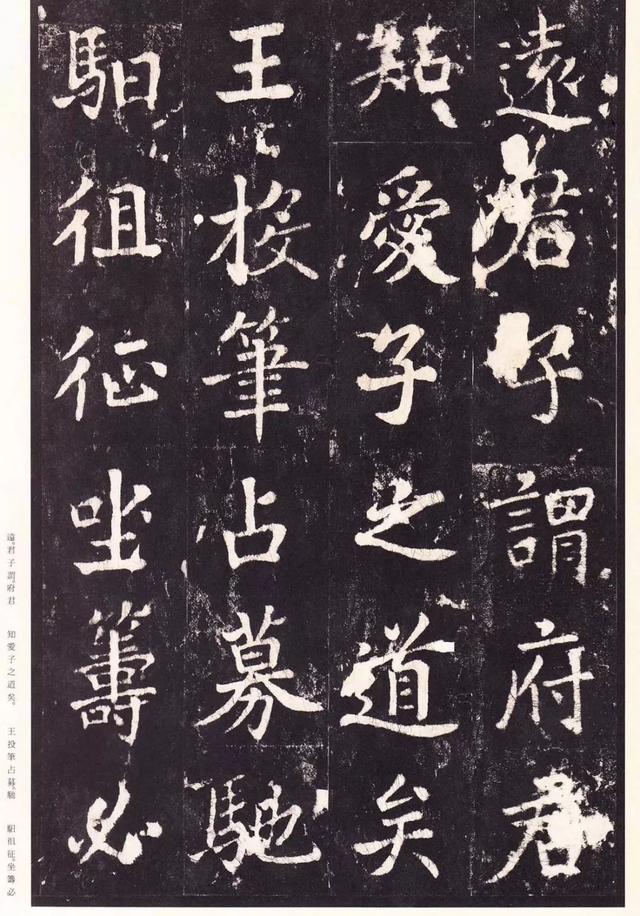 遠君子謂府君
知愛子之道矣
王投筆占募馳
馹徂征坐籌必
遠。君子謂府君　知愛子之道矣。　王投筆占募。馳　馹徂征。坐籌必